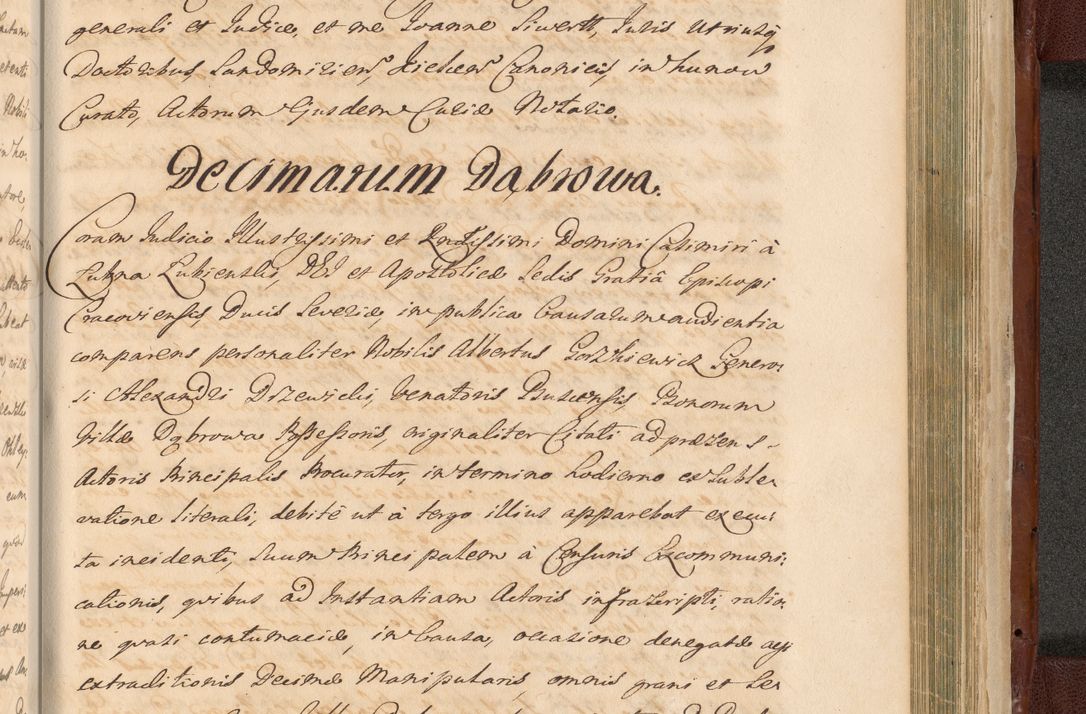 generali et Judice, et me Joanne Siwertt, Juris Utriusq
Doctoribus, Sandomirien, Kielcen Canonicis, in hunow
Curato, Actorum Ejusdem Curiæ Notario.
Decimarum Dąbrowa.
Coram Judicio Illustrissimi et Rndissimi Domini Casimiri à
Łubna Łubienski, DEI et Apostolicæ Sedis Gratiâ Episcopi
Cracoviensis, Ducis Severiæ, in publica Causarum audientia
comparens personaliter Nobilis Albertus Gorzkiewicz Genero-
si Alexandri Drzewicki, Venatoris Buscensis, Bonorum
Villæ Dąbrowa Possessoris, originaliter Citati ad præsens
Actoris Principalis Procurator, in termino hodierno ex Suble-
vatione literali, debitè ut à tergo illius apparebat execu-
ta incidenti, Suum Principalem à Censuris Excommuni-
cationis, quibus ad Instantiam Actoris infrascripti, ratio-
ne quasi contumaciæ, in Causa, occasione denegatæ
extraditionis Decimæ Manipularis, omnis grani et Le-